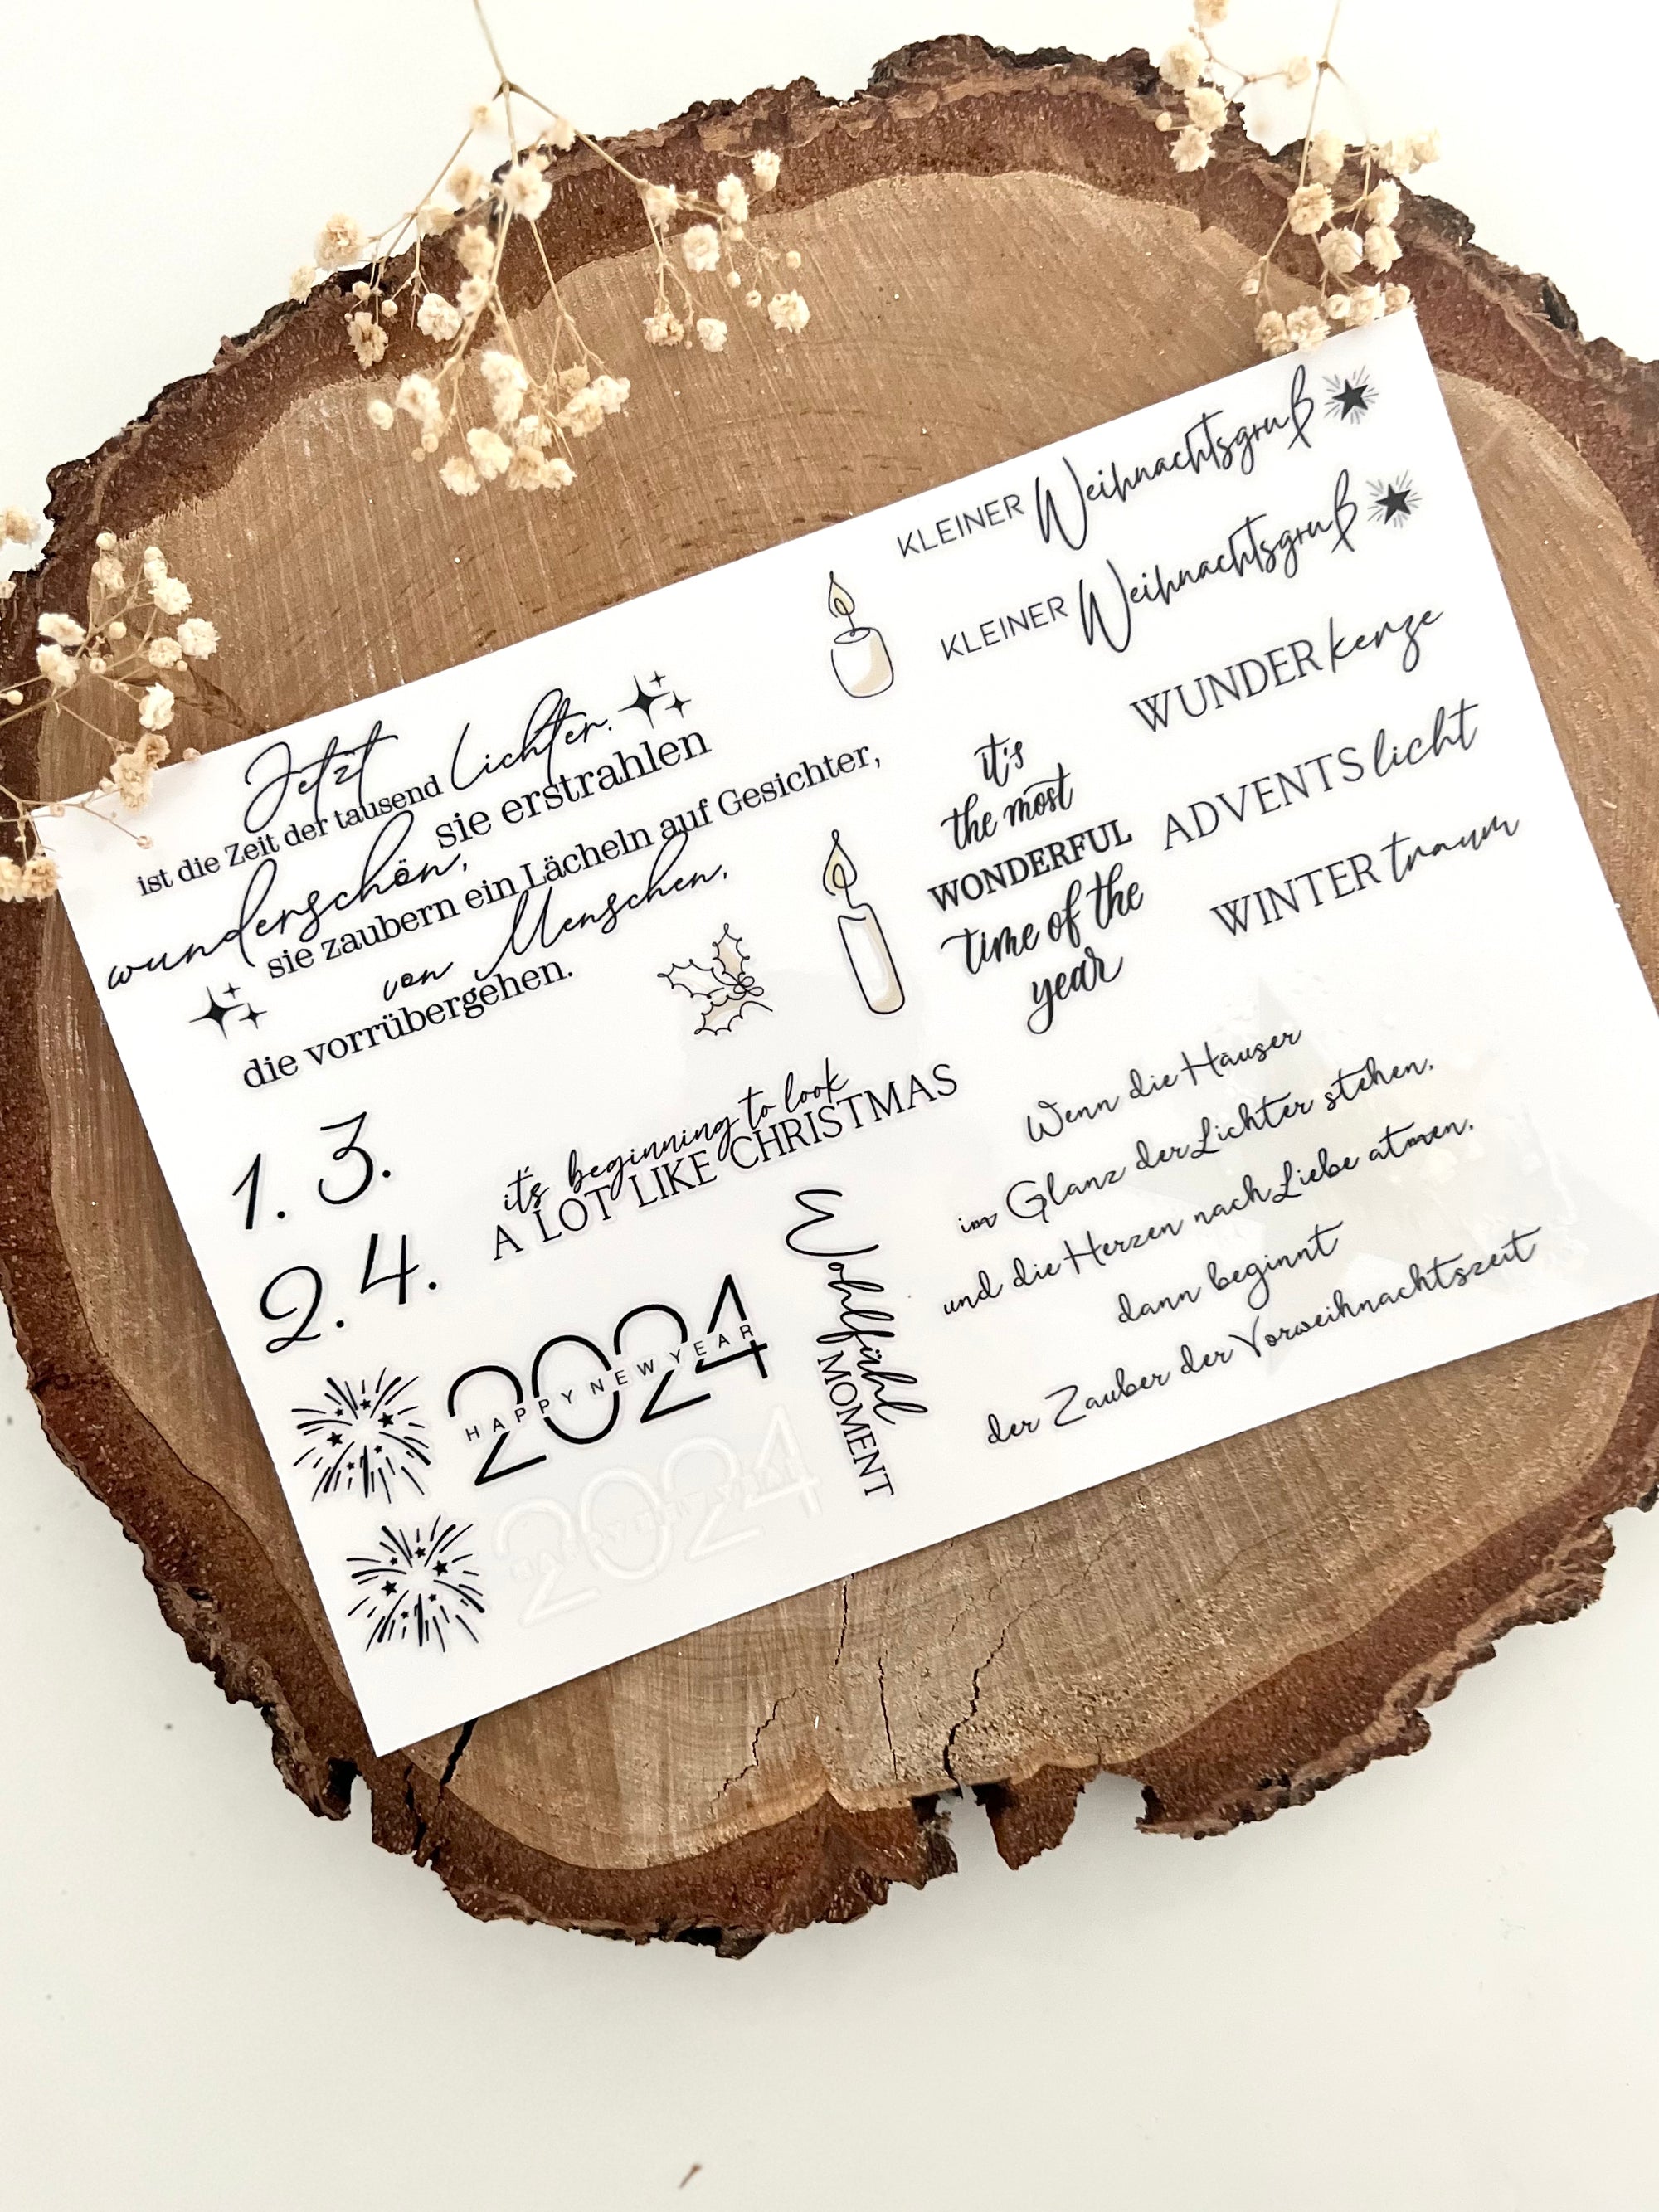 Jetzt
ist die Zeit der tausend Lichter.
wunderschön, sie erstrahlen
sie zaubern ein Lächeln auf Gesichter,
von Menschen,
die vorrübergehen.
KLEINER Weihnachtsgruß
KLEINER Weihnachtsgruß
WUNDERkerze
ADVENTSlicht
WINTERtraum
it's
the most
WONDERFUL
time of the
year
1. 3.
2. 4.
it's beginning to look
A LOT LIKE CHRISTMAS
2024
HAPPY NEW YEAR
2024
HAPPY NEW YEAR
Wohlfühl
MOMENT
Wenn die Häuser
im Glanz der Lichter stehen,
und die Herzen nach Liebe atmen,
dann beginnt
der Zauber der Vorweihnachtszeit